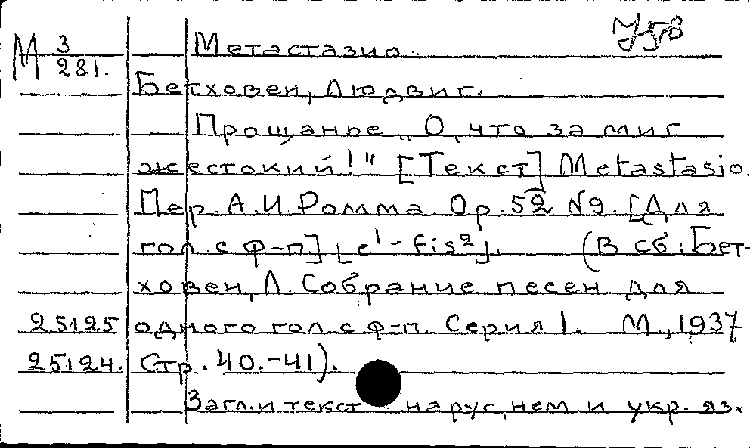 М 3/281. Метастазио. У5в
Бетховен, Людвиг.
Прощанье „О, что за миг
жестокий!" [Текст] Metastasio.
Пер. А.И Ромма. Op. 52 №9. [Для
гол. с ф-п] [e¹-fis²]. (В сб.: Бет-
ховен, Л. Собрание песен для
25125 одного гол. с ф-п. Серия 1. М., 1937
25124. Стр. 40.-41).
Загл. и текст на рус, нем и укр. яз.